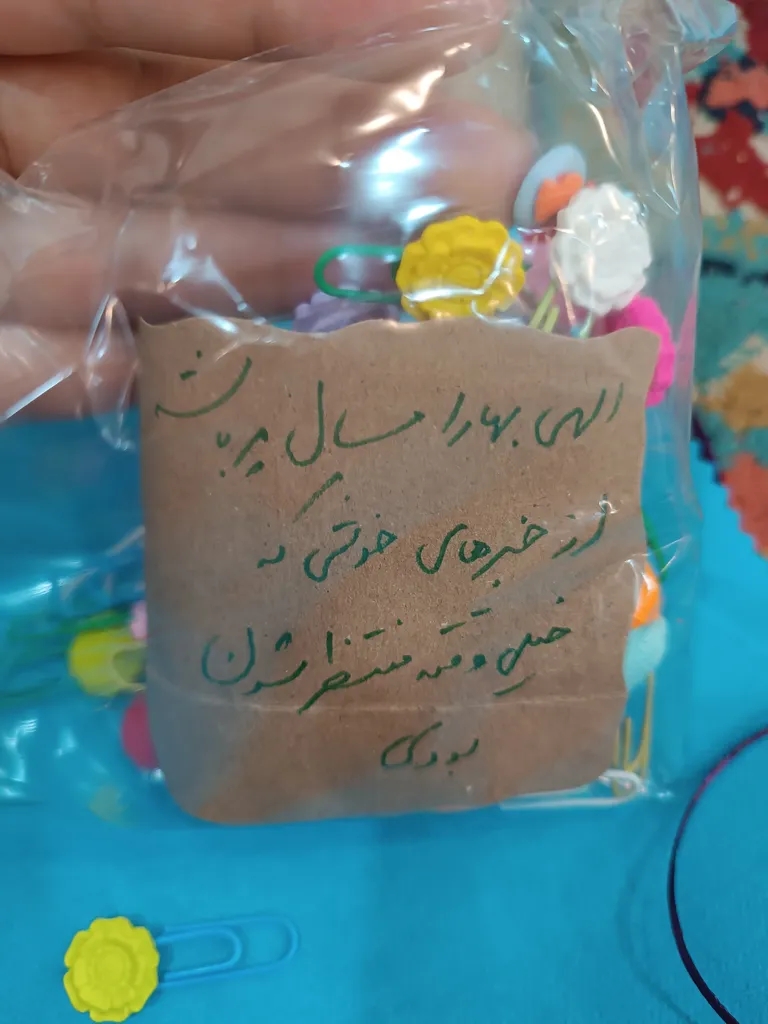 الهی بهار امسال پر باشه
از خبرهای خوشی که
خیلی وقته منتظرشون
بودی